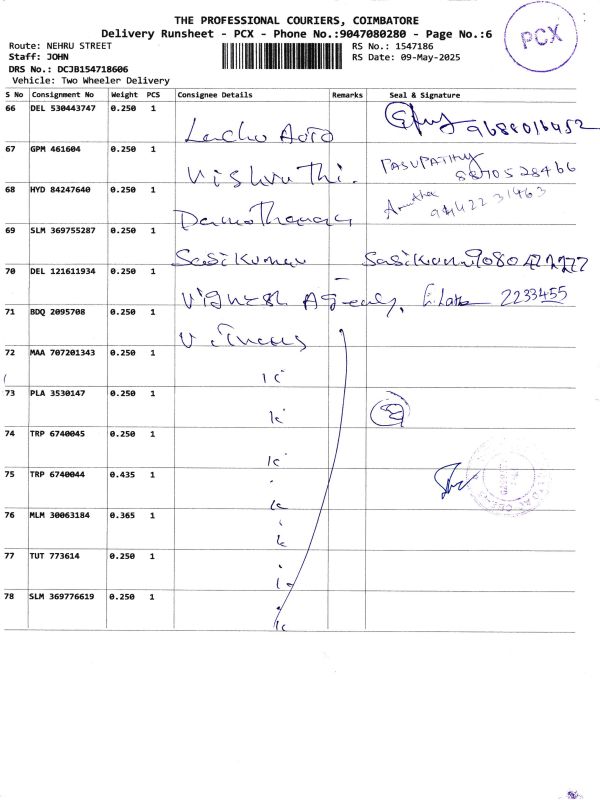 THE PROFESSIONAL COURIERS, COIMBATORE
Delivery Runsheet - PCX - Phone No.:9047080280 - Page No.:6
PCX
Route: NEHRU STREET
RS No.: 1547186
Staff: JOHN
RS Date: 09-May-2025
DRS No.: DCJB154718606
Vehicle: Two Wheeler Delivery
S No Consignment No Weight PCS Consignee Details Remarks Seal & Signature
66 DEL 530443747 0.250 1 9688016452
67 GPM 461604 0.250 1 Vishnu Thi. PASUPATHY 8870528466
68 HYD 84247640 0.250 1 9442231463
69 SLM 369755287 0.250 1 Sasikumar Sasikumar 9080
70 DEL 121611934 0.250 1 Vignesh Agency, 2233455
71 BDQ 2095708 0.250 1
72 MAA 707201343 0.250 1
73 PLA 3530147 0.250 1
74 TRP 6740045 0.250 1
75 TRP 6740044 0.435 1
76 MLM 30063184 0.365 1
77 TUT 773614 0.250 1
78 SLM 369776619 0.250 1